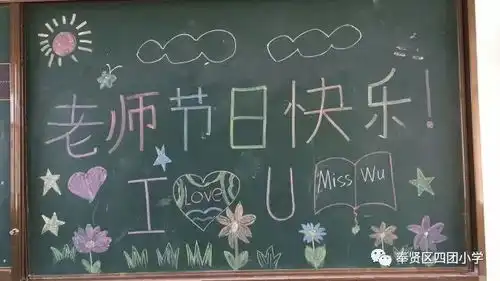 老师节日快乐!
I Love U
Miss Wu
奉贤区四团小学